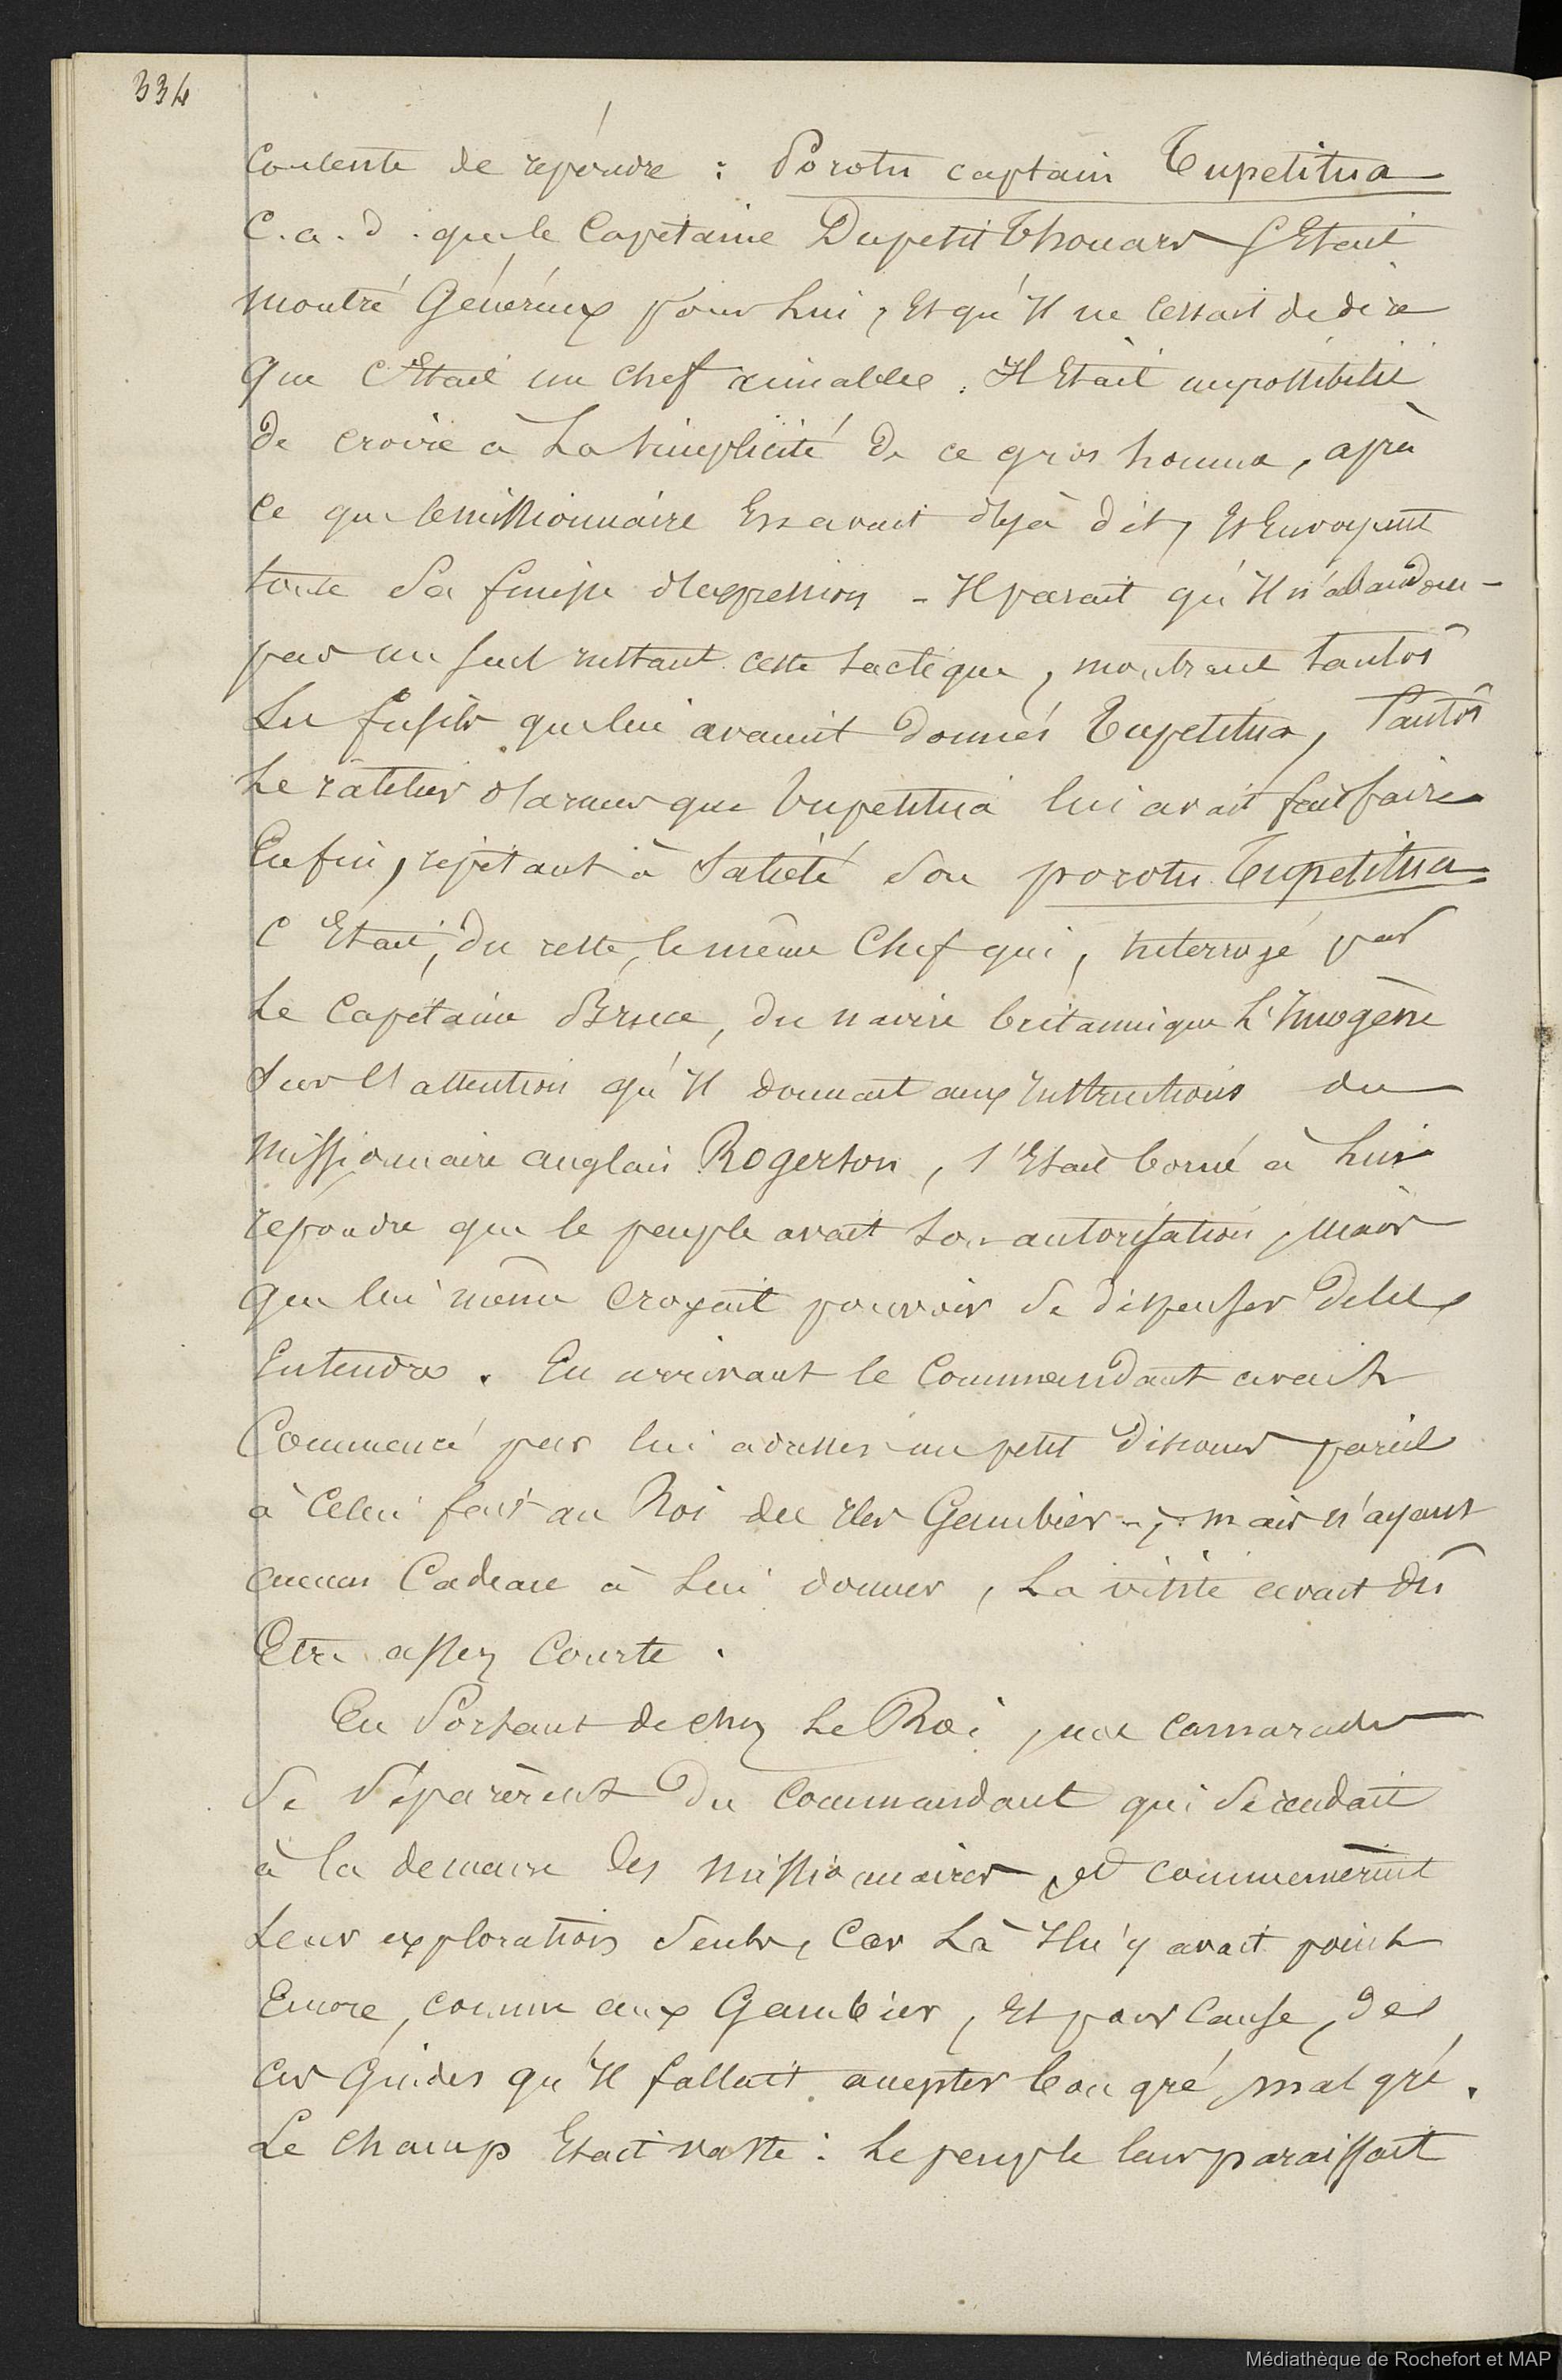 334
contenta de répondre : Porotu captain Tupetitua
C. a. d. que le Capitaine Dupetit Thouars s'Etait
montré Généreux pour Lui, Et qu'Il ne Cessait de dire
que C'Etait un Chef aimable. Il Etait impossibilité
de croire à La Simplicité de ce gros homme, après
Ce que le missionnaire En avait déjà dit, Et En voyant
toute Sa finesse d'expression - Il parait qu'Il n'abandon-
pas un seul instant cette tactique, montrant tantôt
Les fusils que lui avaient donnés Tupetitua, Tantôt
Le râtelier d'armes que Tupetitua lui avait fait faire
Enfin, répétant à Satiété Son porotu Tupetitua
C'Etait, du reste, le même Chef qui, Interrogé par
Le Capitaine Bruce, du navire britannique L'Imogène
Sur l'attention qu'Il donnait aux Instructions du
Missionnaire anglais Rogerson, s'Etait borné à Lui
répondre que le peuple avait Son autorisation, mais
que lui même Croyait pouvoir Se dispenser de les
Entendre. En arrivant le Commandant avait
Commencé par lui adresser un petit discours pareil
à Celui fait au Roi des Iles Gambier - ; mais n'ayant
aucun Cadeau à Lui donner, La visite avait dû
Etre assez Courte.
En Sortant de chez Le Roi, nos camarades
Se Séparèrent du Commandant qui Se rendait
à la demeure des Missionnaires, et commencèrent
Leur exploration Seuls, Car Là Il n'y avait point
Encore, comme aux Gambier, Et pour Cause, de
Ces Guides qu'Il fallait accepter bon gré, mal gré.
Le Champ Etait vaste : Le peuple leur paraissait
Médiathèque de Rochefort et MAP